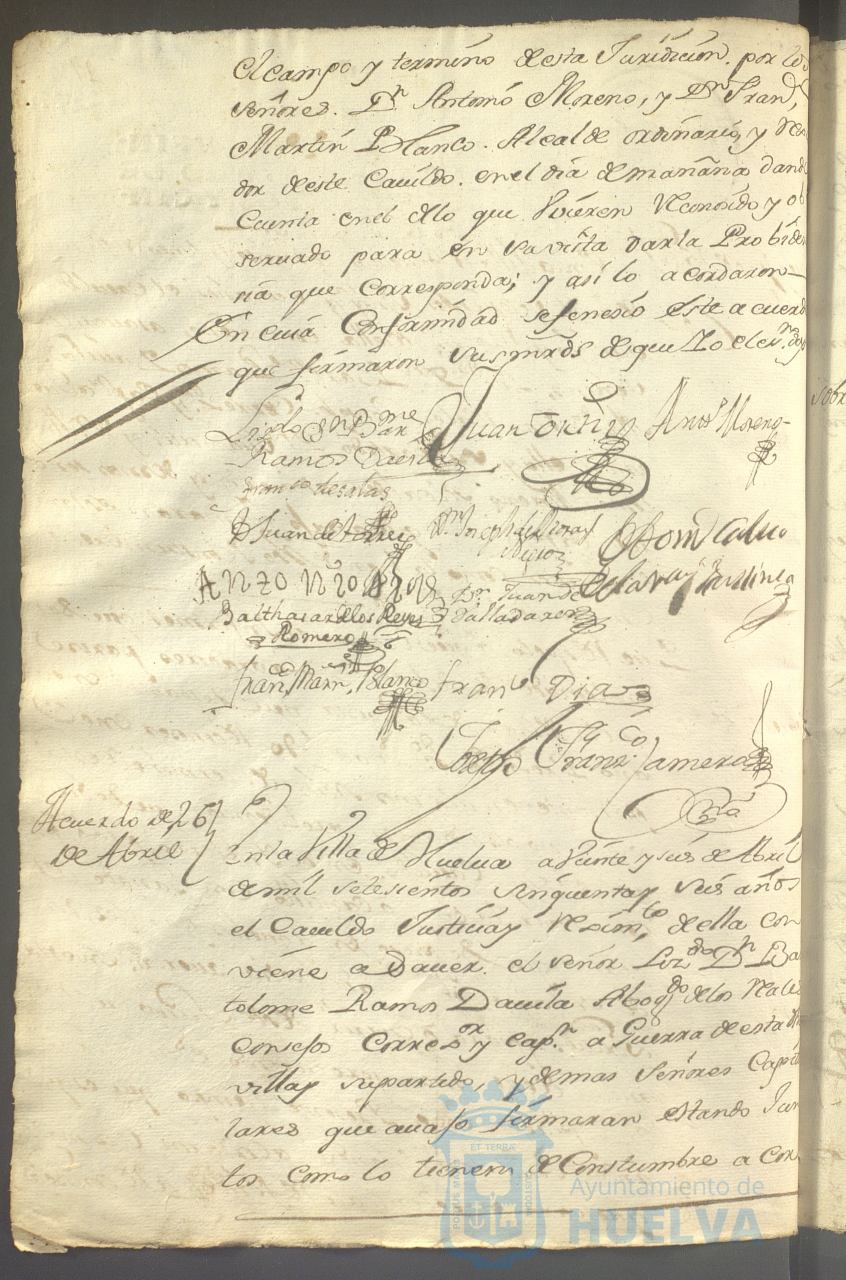 el campo y termino de esta Juridicion. por los
señores. Dn Antonio Moreno, y Dn Franco,
Martin Blanco. Alcalde ordinario, y Re
dor de este Cauildo. en el dia de mañana dand
Cuenta en el de lo que huuieren Reconosido y ob
seruado para en su vista dar la Probiden
cia que Corresponda; y asi lo acordaron
En cuia Conformidad se fenesio este acuerdo
que firmaron sus mrds de que Yo el esn. doy
Lizdo Dn Barme
Ramos Dauila
Juan Ortiz
Anto Moreno
Franco de salas
D Juan de
Dn Joseph de
Dn Juan de
Valladares
Balthasar de los Reyes
Romero
Franco Martn, Blanco
Franco Dias
Franco Camero
sobr
Acuerdo de 26
de Abril
En la Villa de Huelua a Veinte y seis de Abril
de mil setesientos sinquenta y seis años
el Cauildo Justicia y Reximto, de ella con
viene a Sauer. el señor Lizdo Dn Bar
tolome Ramos Dauila Abogdo de los Reales
consejos Correxor y Capn a Guerra de esta
villa y su partido, y demas Señores Capitu
lares que auajo firmaran estando Jun
tos como lo tienen de Constumbre a Con
PORTUS MARIS
ET TERRÆ
CUSTODIA
Ayuntamiento de
HUELVA